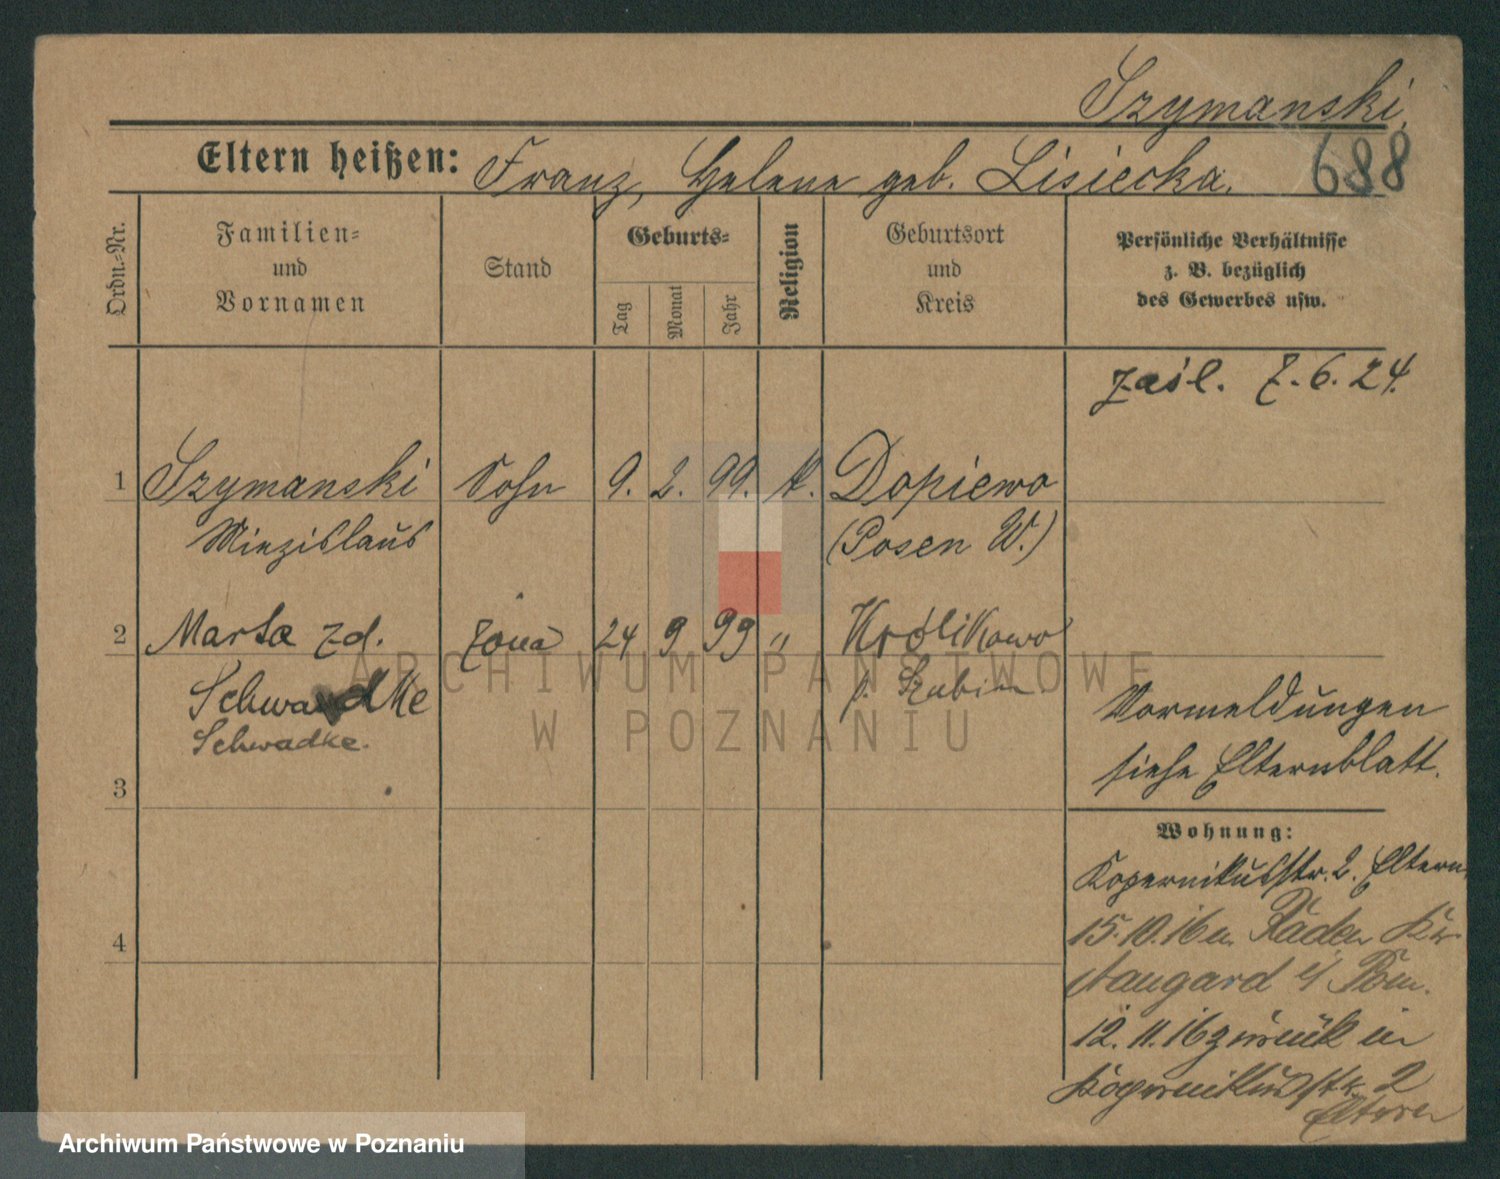 Szymanski.
Eltern heißen: Franz, Helene geb. Lisiecka.
688
Ordn.-Nr.
Familien-
und
Vornamen
Stand
Geburts-
Tag
Monat
Jahr
Religion
Geburtsort
und
Kreis
Persönliche Verhältnisse
z. B. bezüglich
des Gewerbes usw.
zaśl. 7.6.24.
1 Szymanski Sohn 9. 2. 99. k. Dopiewo
Miezislaus (Posen W.)
2 Marta zd. żona 24 9 99 " Królikowo
Schwadtke p. Szubin
Schwadke.
Vormeldungen
siehe Elternblatt.
3
Wohnung:
Kopernikusstr. 2. Eltern.
15.10.16 n. Kr.
4
Naugard i/ Pom.
12.11.16 zurück in
Kopernikusstr. 2
Eltern
ARCHIWUM PAŃSTWOWE
W POZNANIU
Archiwum Państwowe w Poznaniu